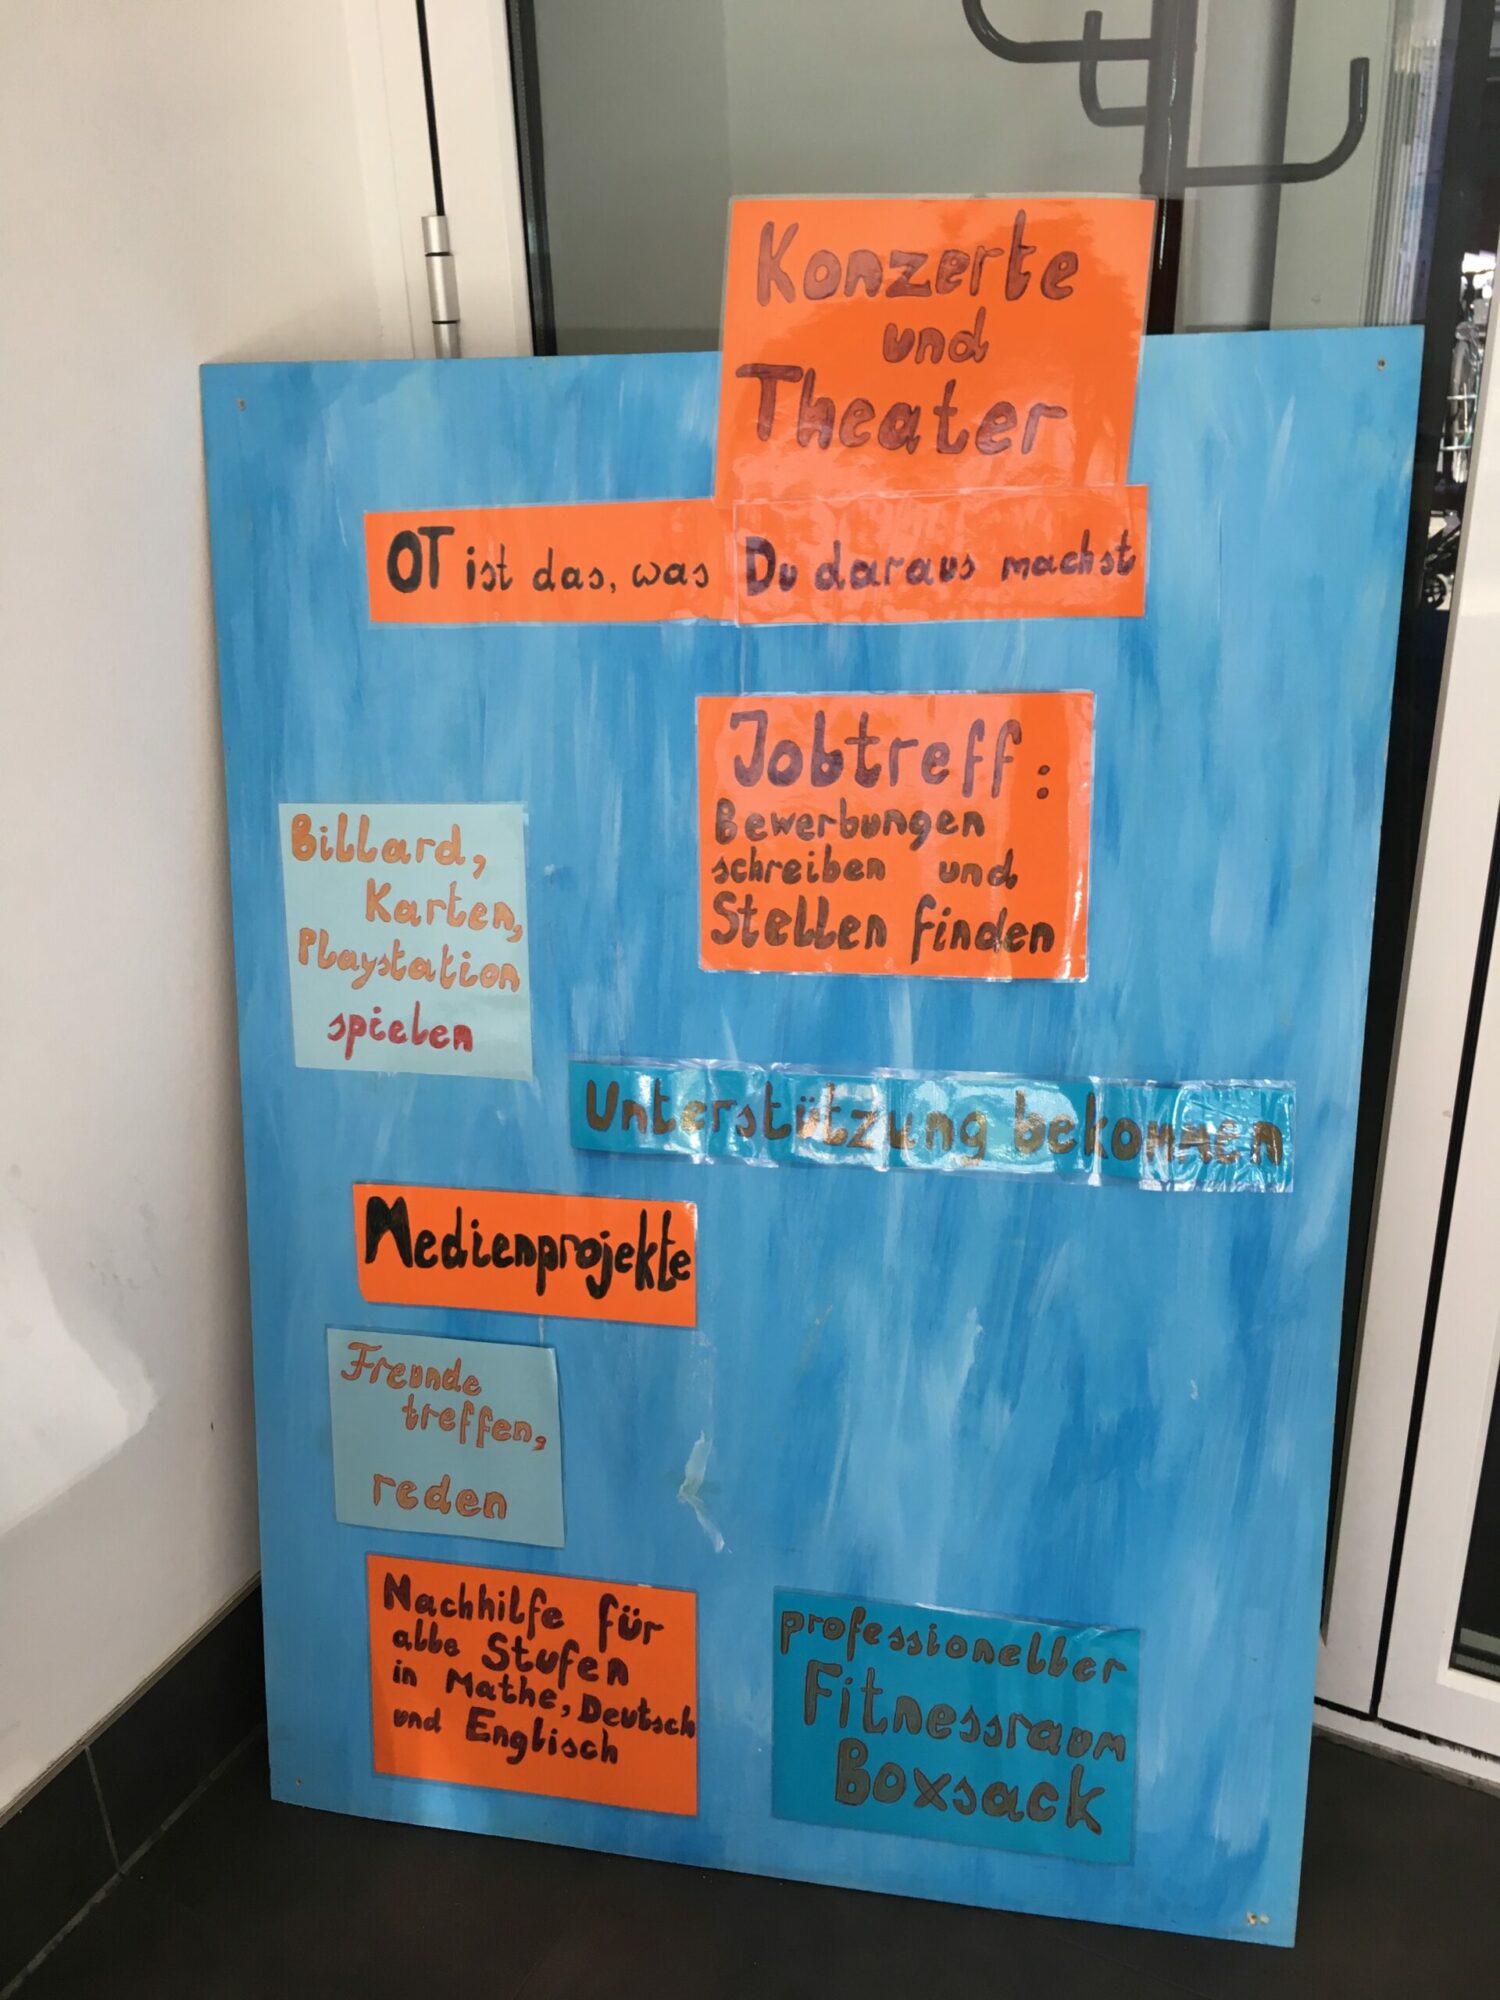 Konzerte
und
Theater
OT ist das, was Du daraus machst
Jobtreff:
Bewerbungen
schreiben und
Stellen finden
Billard,
Karten,
Playstation
spielen
Unterstützung bekommen
Medienprojekte
Freunde
treffen,
reden
Nachhilfe für
alle Stufen
in Mathe, Deutsch
und Englisch
professioneller
Fitnessraum
Boxsack